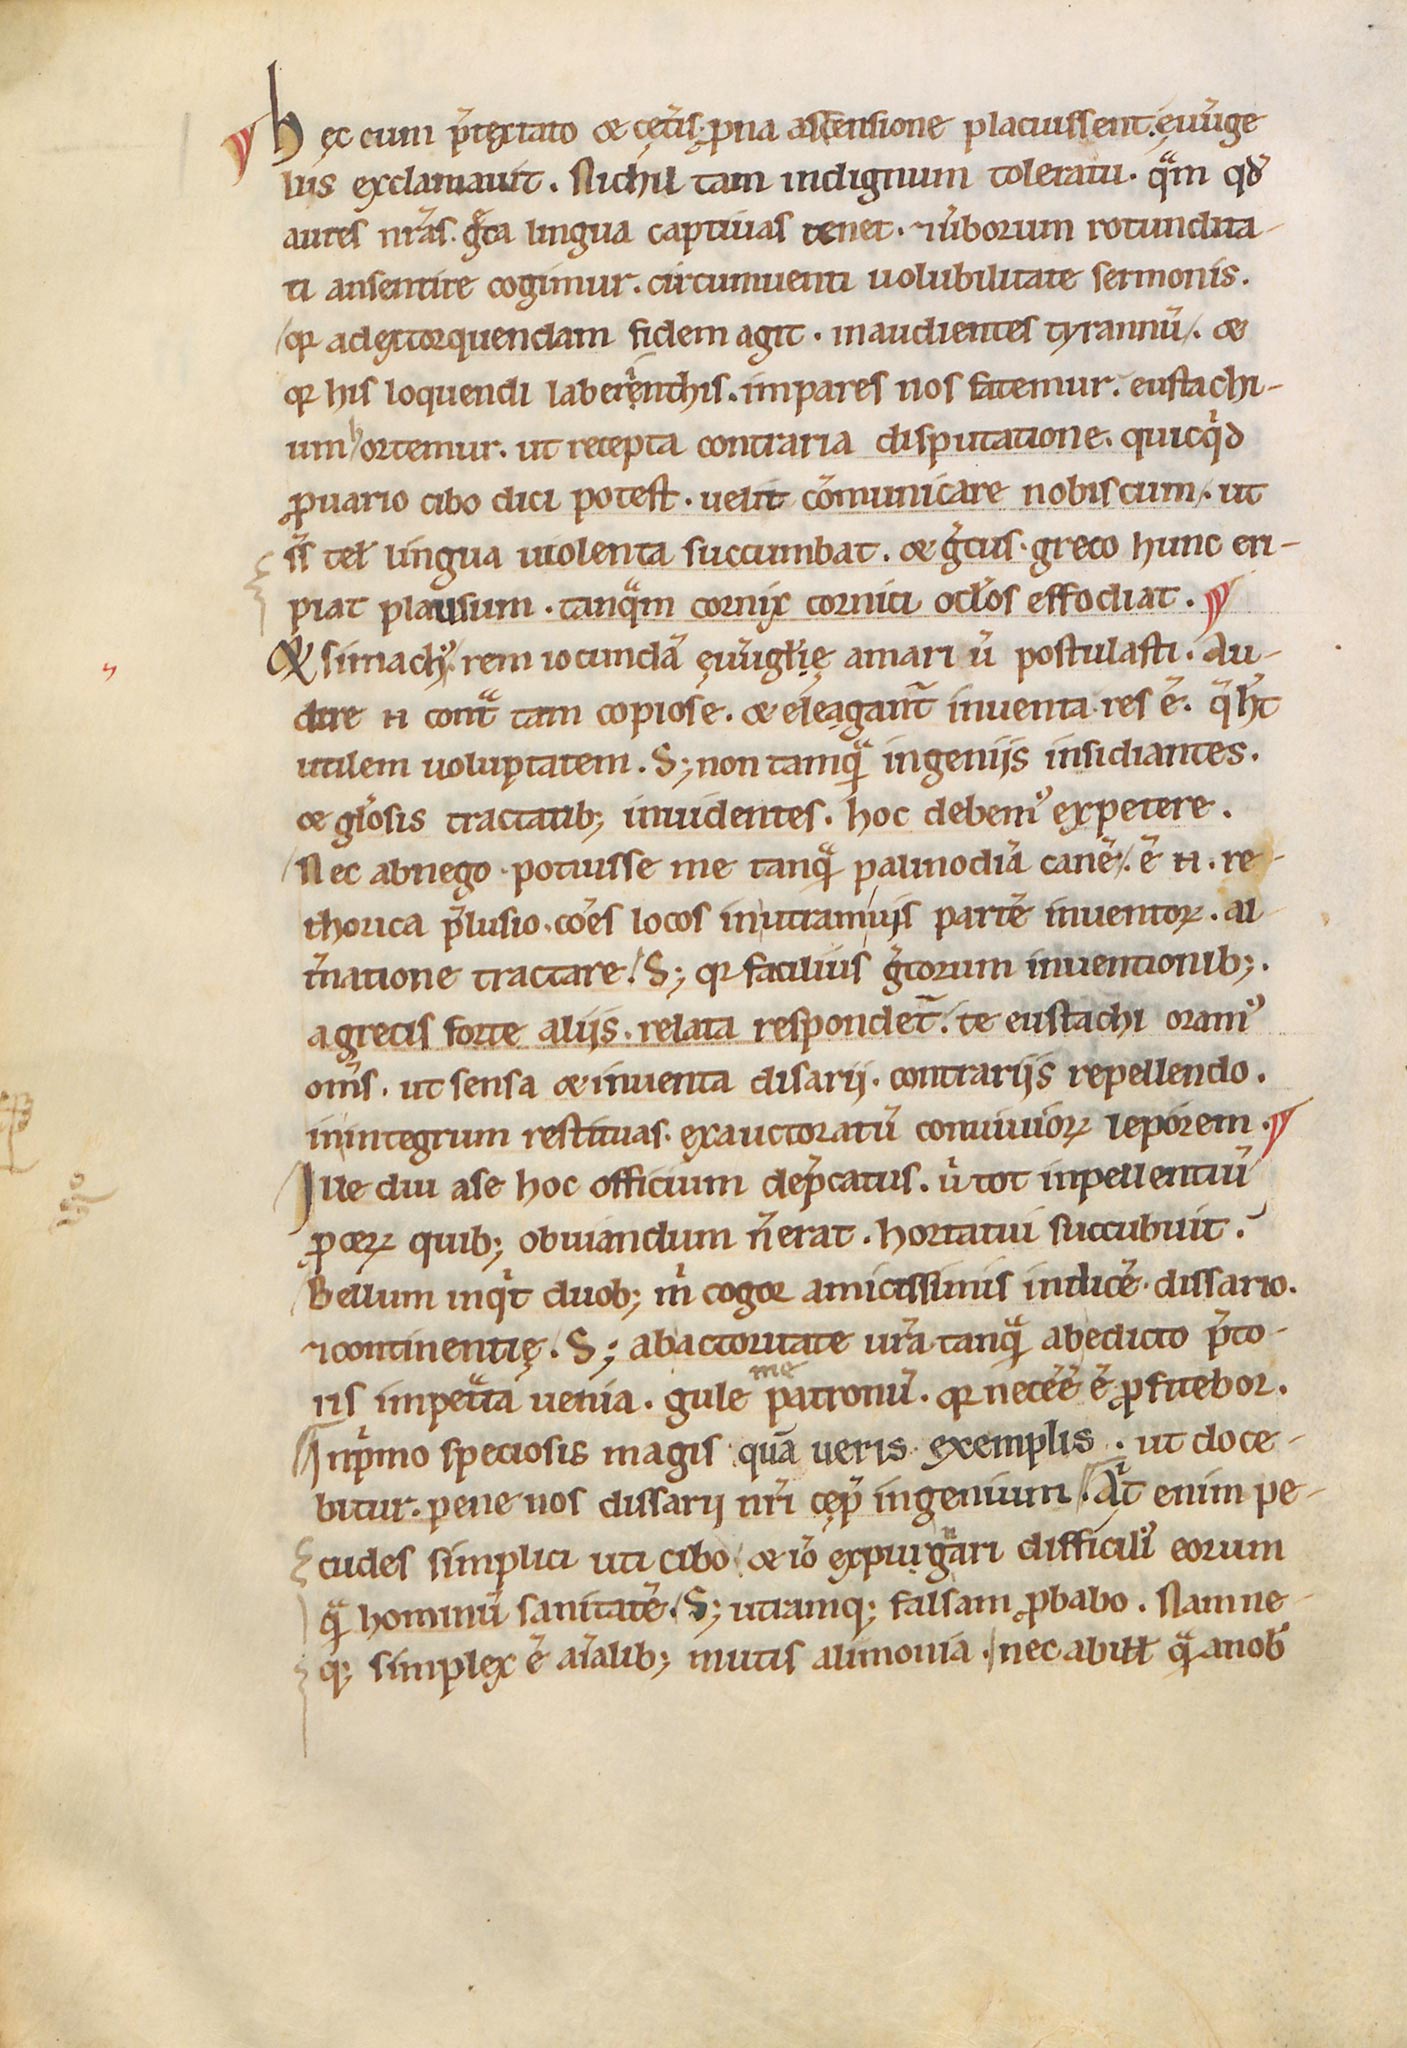 hęc cum p̄tęxtato & cęt̄is. ꝓna ascensione placuissent. ęuūge
lius exclamauit. Nichil tam indignum toleratu. qᵃm qđ
aures nr̄as. gᵉca lingua captiuas tenet. ⁊ ur̄borum rotundita-
ti ansentire cogimur. circumuenti uolubilitate sermonis.
qꝛ ad extorquendam fidem agit. in audientes tyrannū. &
qꝛ his loquendi laberinthis. impares nos fatemur. eustachi-
um hortemur. ut recepta contraria disputatione. quicqⁱd
ꝓ uario cibo dici potest. uelit cōmunicare nobiscum. ut
s̄s tel̄ lingua uiolenta succumbat. & gᵉcus. greco hunc eri-
piat plausum. tanqᵃm cornix cornici ocl̄os effodiat.
Et simachꝰ. rem iocundā ęuūgl̄ię amari ū postulasti. Au-
dere .n. cont̄ᵃ tam copiose. & eleagant̄ inuenta res ē. q̄ h̄t
utilem uoluptatem. S; non tamqᵃ ingeniis insidiantes.
& gl̄osis tractatib; inuidentes. hoc debemꝰ expetere.
Nec abnego. potuisse me tanqᵃ palinodiā canē. ē .n. re-
thorica p̄lusio. cōes locos in utramuis partē inuentoꝝ. al
t̄natione tractare. S; qꝛ facilius gᵉcorum inuentionib;.
a grecis forte aliis. relata respondet̄. te eustachi oramꝰ
om̄s. ut sensa & inuenta disarii. contrariis repellendo.
in integrum restituas. exauctoratū conuiuioꝝ leporem.
Ille diu a se hoc officium dep̄catus. ū tot inpellentiū
ꝓceꝝ quib; obuiandum n̄ erat. hortatui succubuit.
Bellum inqⁱt duob; m̄ cogor amicissimis indicē. dissario.
⁊ continentię. S; ab actoritate ur̄a. tanqᵃ ab edicto p̄to-
ris impet̄ᵃta uenia. gule me patronū. qꝛ necēē ē ꝓfitebor.
In pⁱmo speciosis magis quā ueris exemplis. ut doce-
bitur. pene nos dissarii nr̄i cęp̄ ingenium. Aⁱt enim pe-
cudes simplici uti cibo. & iō expurgᵃri difficiliꝰ eorum
qᵃ hominū sanitatē. S; utramq; falsam ꝓbabo. Nam ne-
q; simplex ē aīalib; mutis alimonia. nec ab ill̄ qᵃ a nob̄